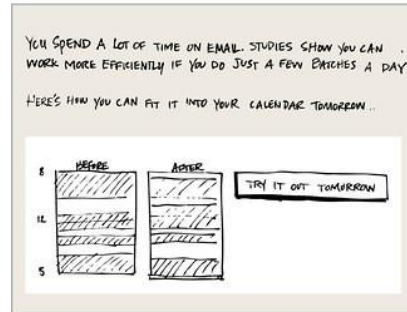 YOU SPEND A LOT OF TIME ON EMAIL. STUDIES SHOW YOU CAN
WORK MORE EFFICIENTLY IF YOU DO JUST A FEW BATCHES A DAY
HERE'S HOW YOU CAN FIT IT INTO YOUR CALENDAR TOMORROW..
BEFORE AFTER
8
TRY IT OUT TOMORROW
12
5